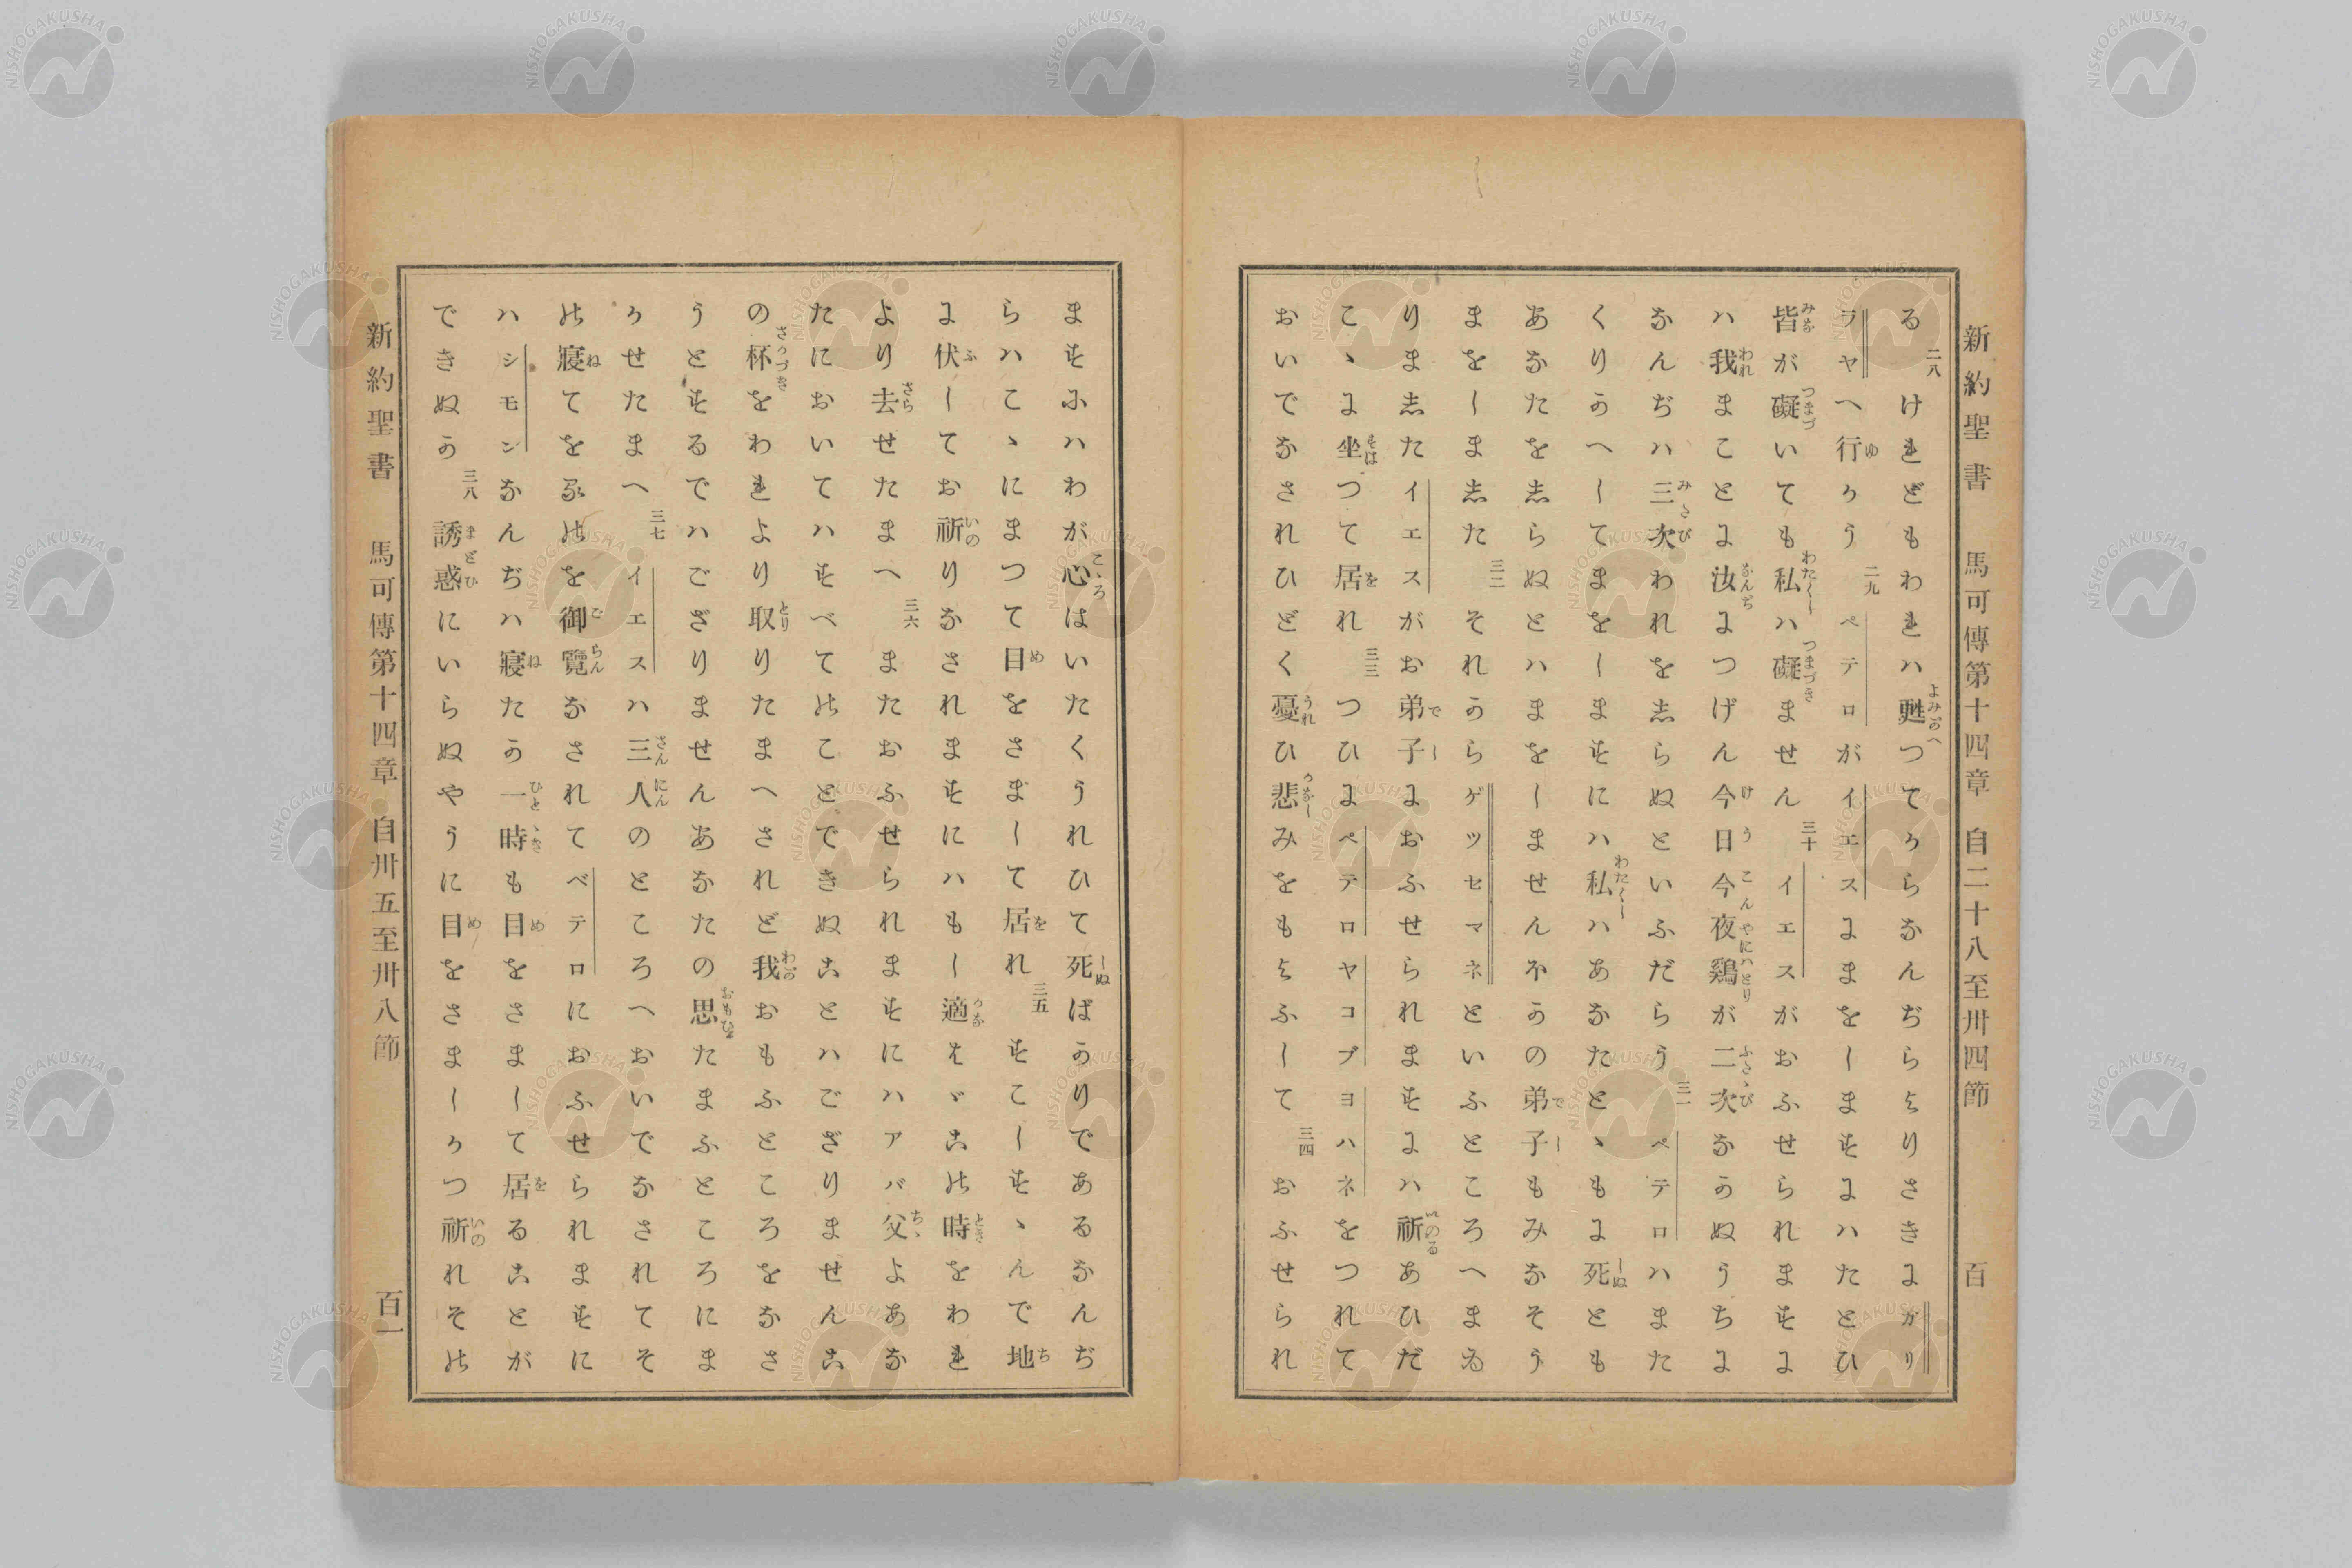 新約聖書 馬可傳第十四章 自二十八至卅四節 百
る二八けれどもわれハ甦つてからなんぢらよりさきにガリ
ラヤへ行かう二九ペテロがイエスにまをしますにハたとひ
皆が礙いても私ハ礙ません三十イエスがおふせられますに
ハ我まことに汝につげん今日今夜鶏が二次なかぬうちに
なんぢハ三次われを志らぬといふだらう三一ペテロハまた
くりかへしてまをしますにハ私ハあなたとゝもに死とも
あなたを志らぬとハまをしませんほかの弟子もみなそう
まをしま志た三二それからゲツセマネといふところへまゐ
りま志たイエスがお弟子におふせられますにハ祈あひだ
こゝに坐つて居れ三三つひにペテロヤコブヨハネをつれて
おいでなされひどく憂ひ悲みをもよふして三四おふせられ
ますにハわが心はいたくうれひて死ばかりであるなんぢ
らハこゝにまつて目をさまして居れ三五すこしすゝんで地
に伏してお祈りなされますにハもし適はゞこの時をわれ
より去せたまへ三六またおふせられますにハアバ父よあな
たにおいてハすべてのことできぬことハござりませんこ
の杯をわれより取りたまへされど我おもふところをなさ
うとするでハござりませんあなたの思たまふところにま
かせたまへ三七イエスハ三人のところへおいでなされてそ
の寢てをるのを御覽なされてペテロにおふせられますに
ハシモンなんぢハ寢たか一時も目をさまして居ることが
できぬか三八誘惑にいらぬやうに目をさましかつ祈れその
新約聖書 馬可傳第十四章 自卅五至卅八節 百一